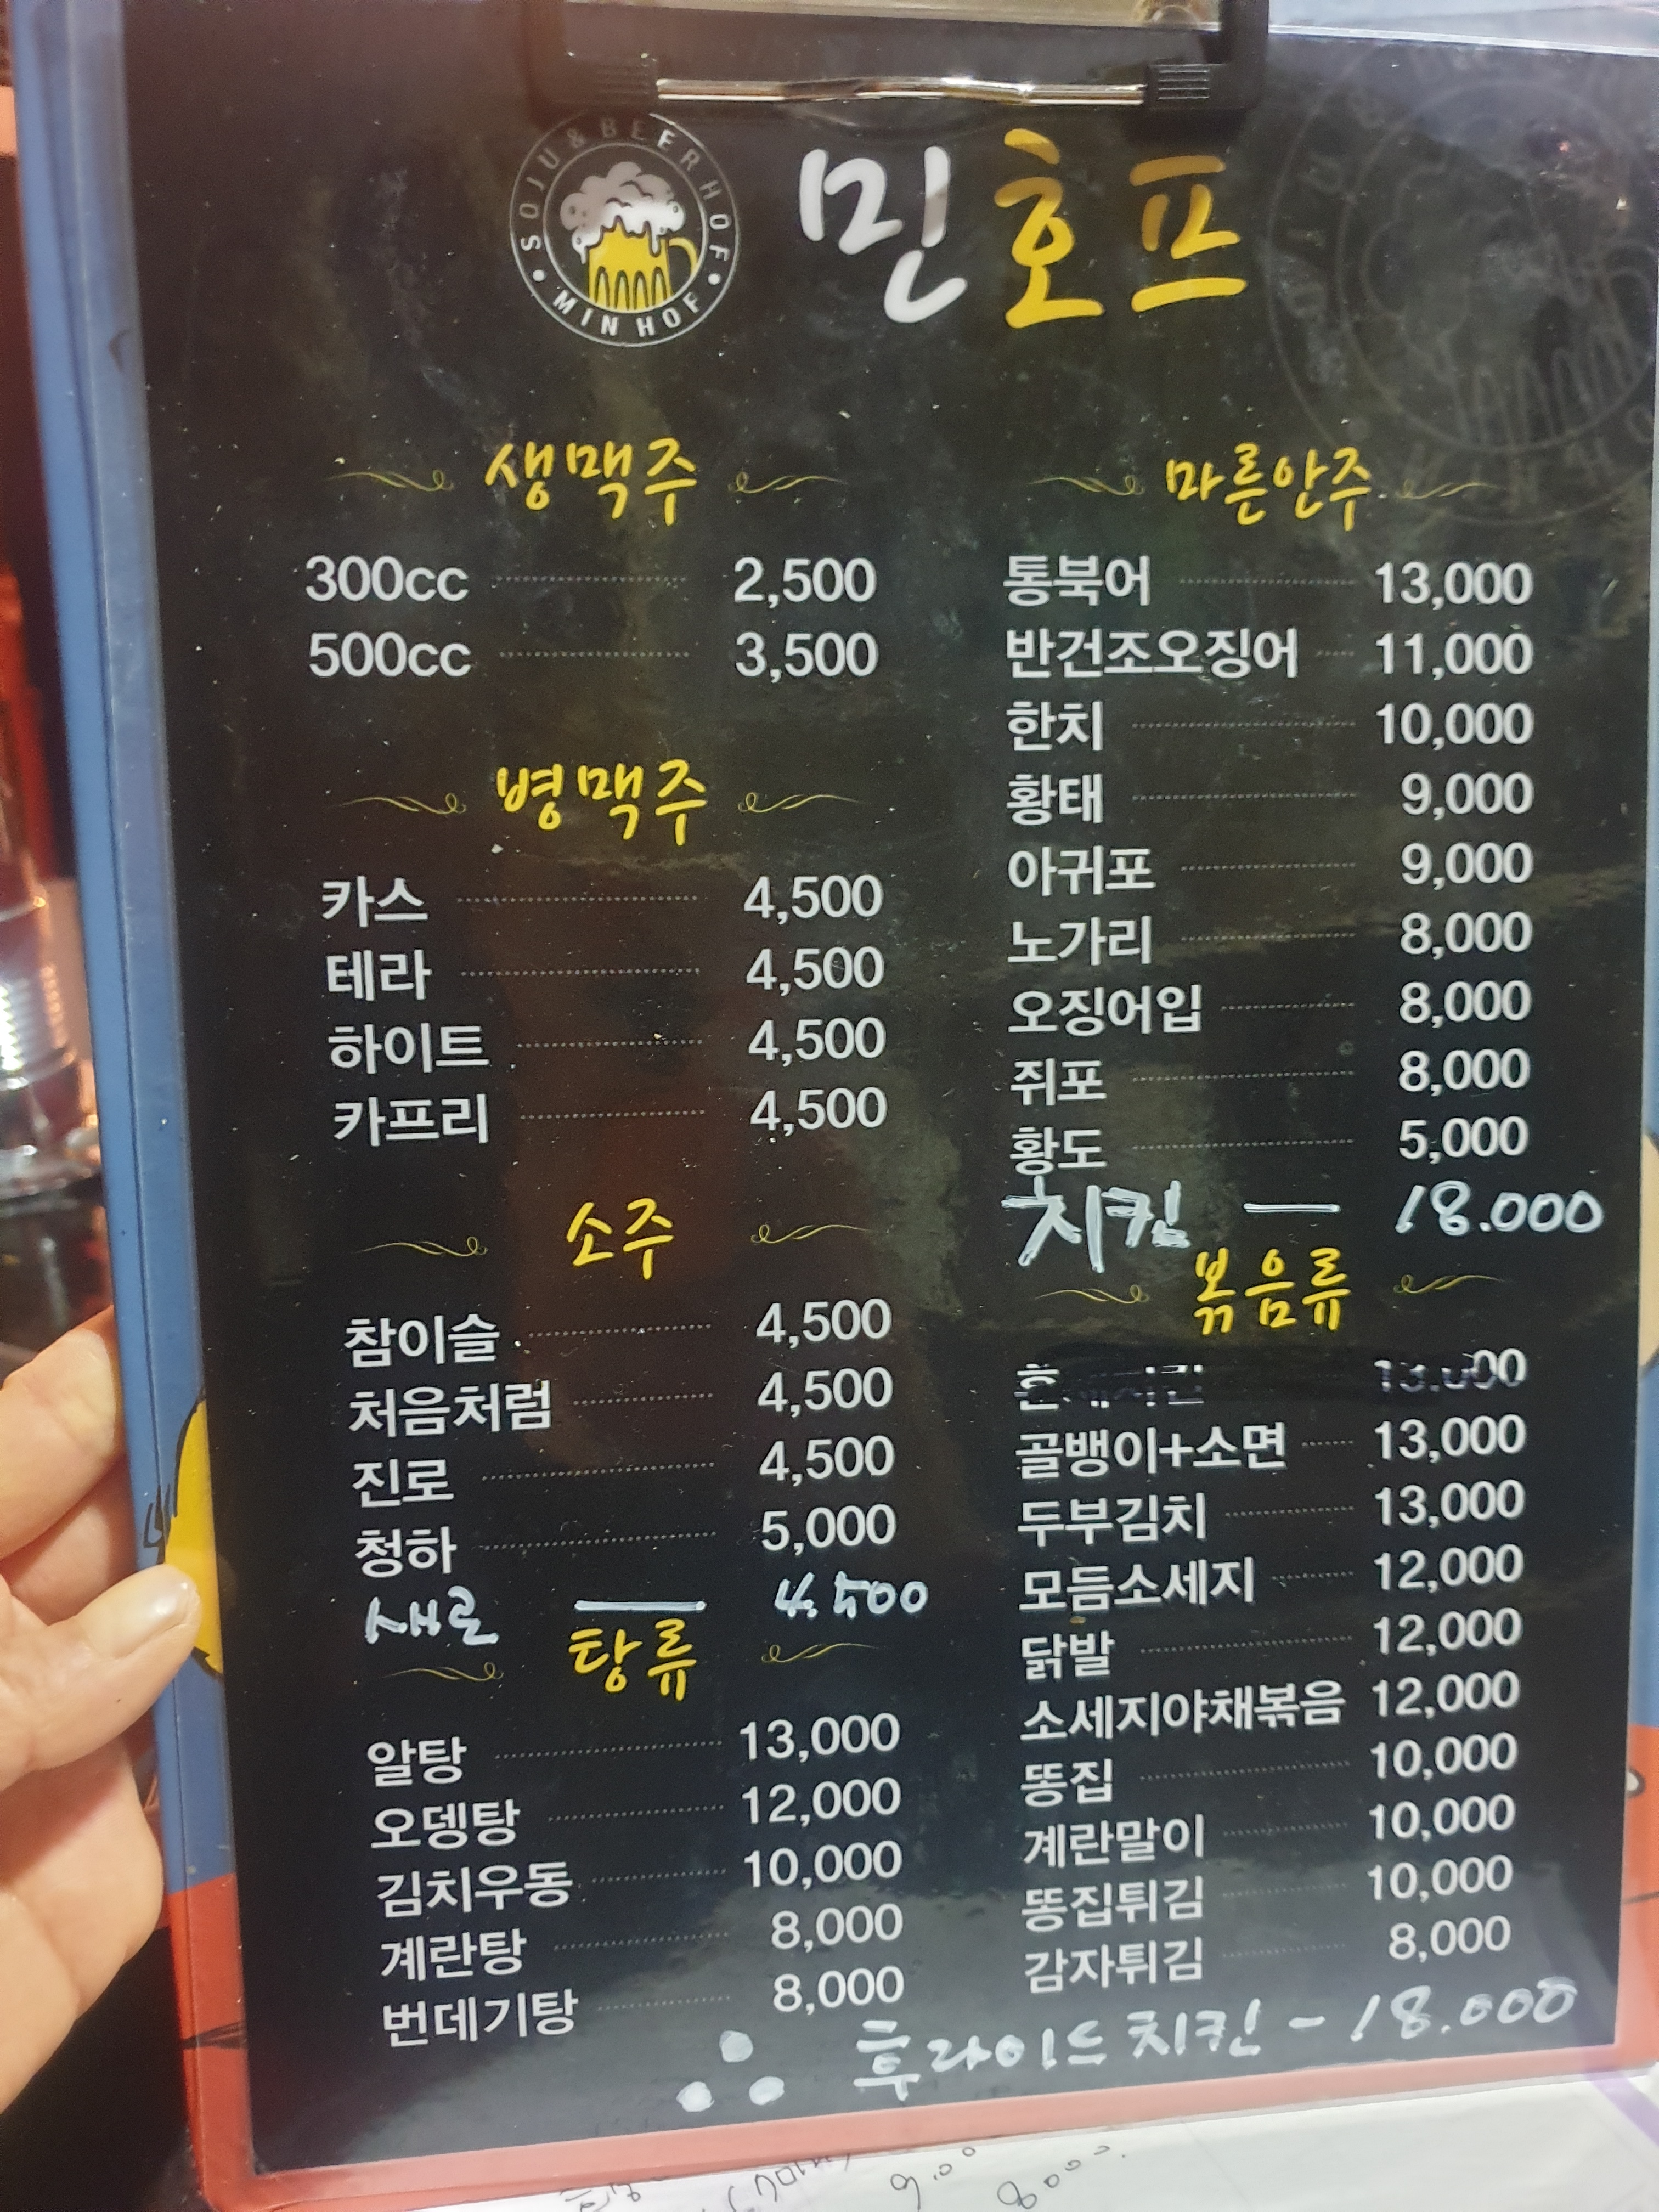 SOJU & BEER HOF
MIN HOF
민호프
생맥주
300cc 2,500
500cc 3,500
병맥주
카스 4,500
테라 4,500
하이트 4,500
카프리 4,500
소주
참이슬 4,500
처음처럼 4,500
진로 4,500
청하 5,000
새로 — 4.500
탕류
알탕 13,000
오뎅탕 12,000
김치우동 10,000
계란탕 8,000
번데기탕 8,000
마른안주
통북어 13,000
반건조오징어 11,000
한치 10,000
황태 9,000
아귀포 9,000
노가리 8,000
오징어입 8,000
쥐포 8,000
황도 5,000
치킨 — 18.000
볶음류
골뱅이+소면 13,000
두부김치 13,000
모듬소세지 12,000
닭발 12,000
소세지야채볶음 12,000
똥집 10,000
계란말이 10,000
똥집튀김 10,000
감자튀김 8,000
∴ 후라이드치킨 - 18.000